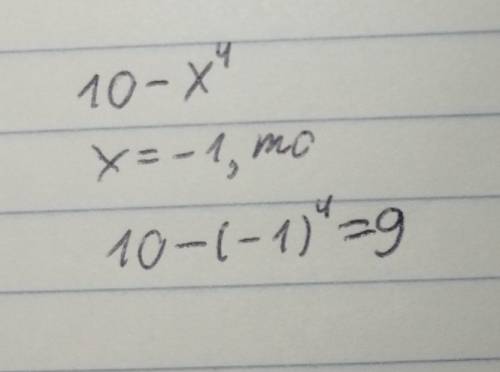 10 - x⁴
x = -1, то
10 - (-1)⁴ = 9